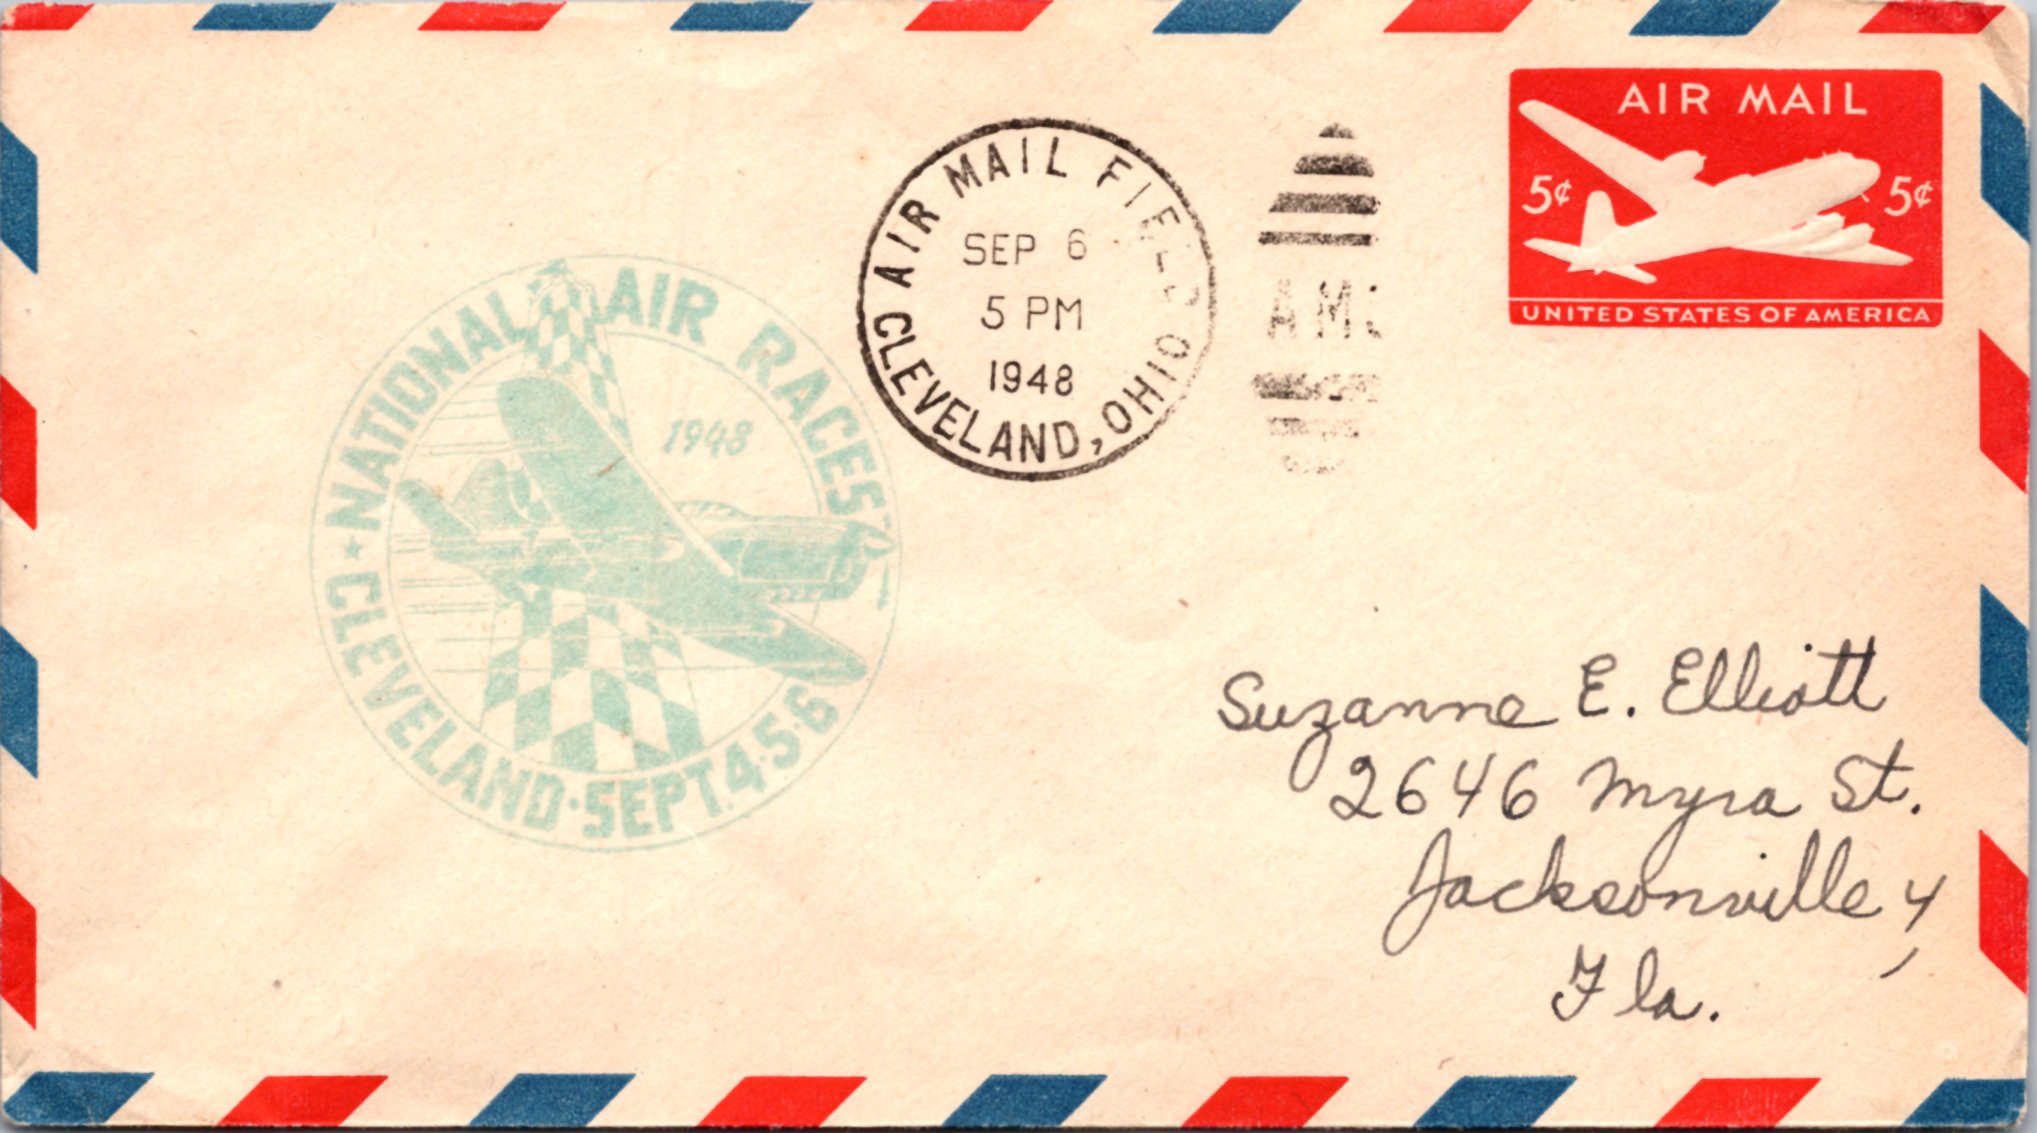 NATIONAL AIR RACES
1948
★ CLEVELAND · SEPT. 4·5·6
AIR MAIL FIELD
SEP 6
5 PM
1948
CLEVELAND, OHIO
AM
AIR MAIL
5¢ 5¢
UNITED STATES OF AMERICA
Suzanne E. Elliott
2646 Myra St.
Jacksonville 4,
Fla.